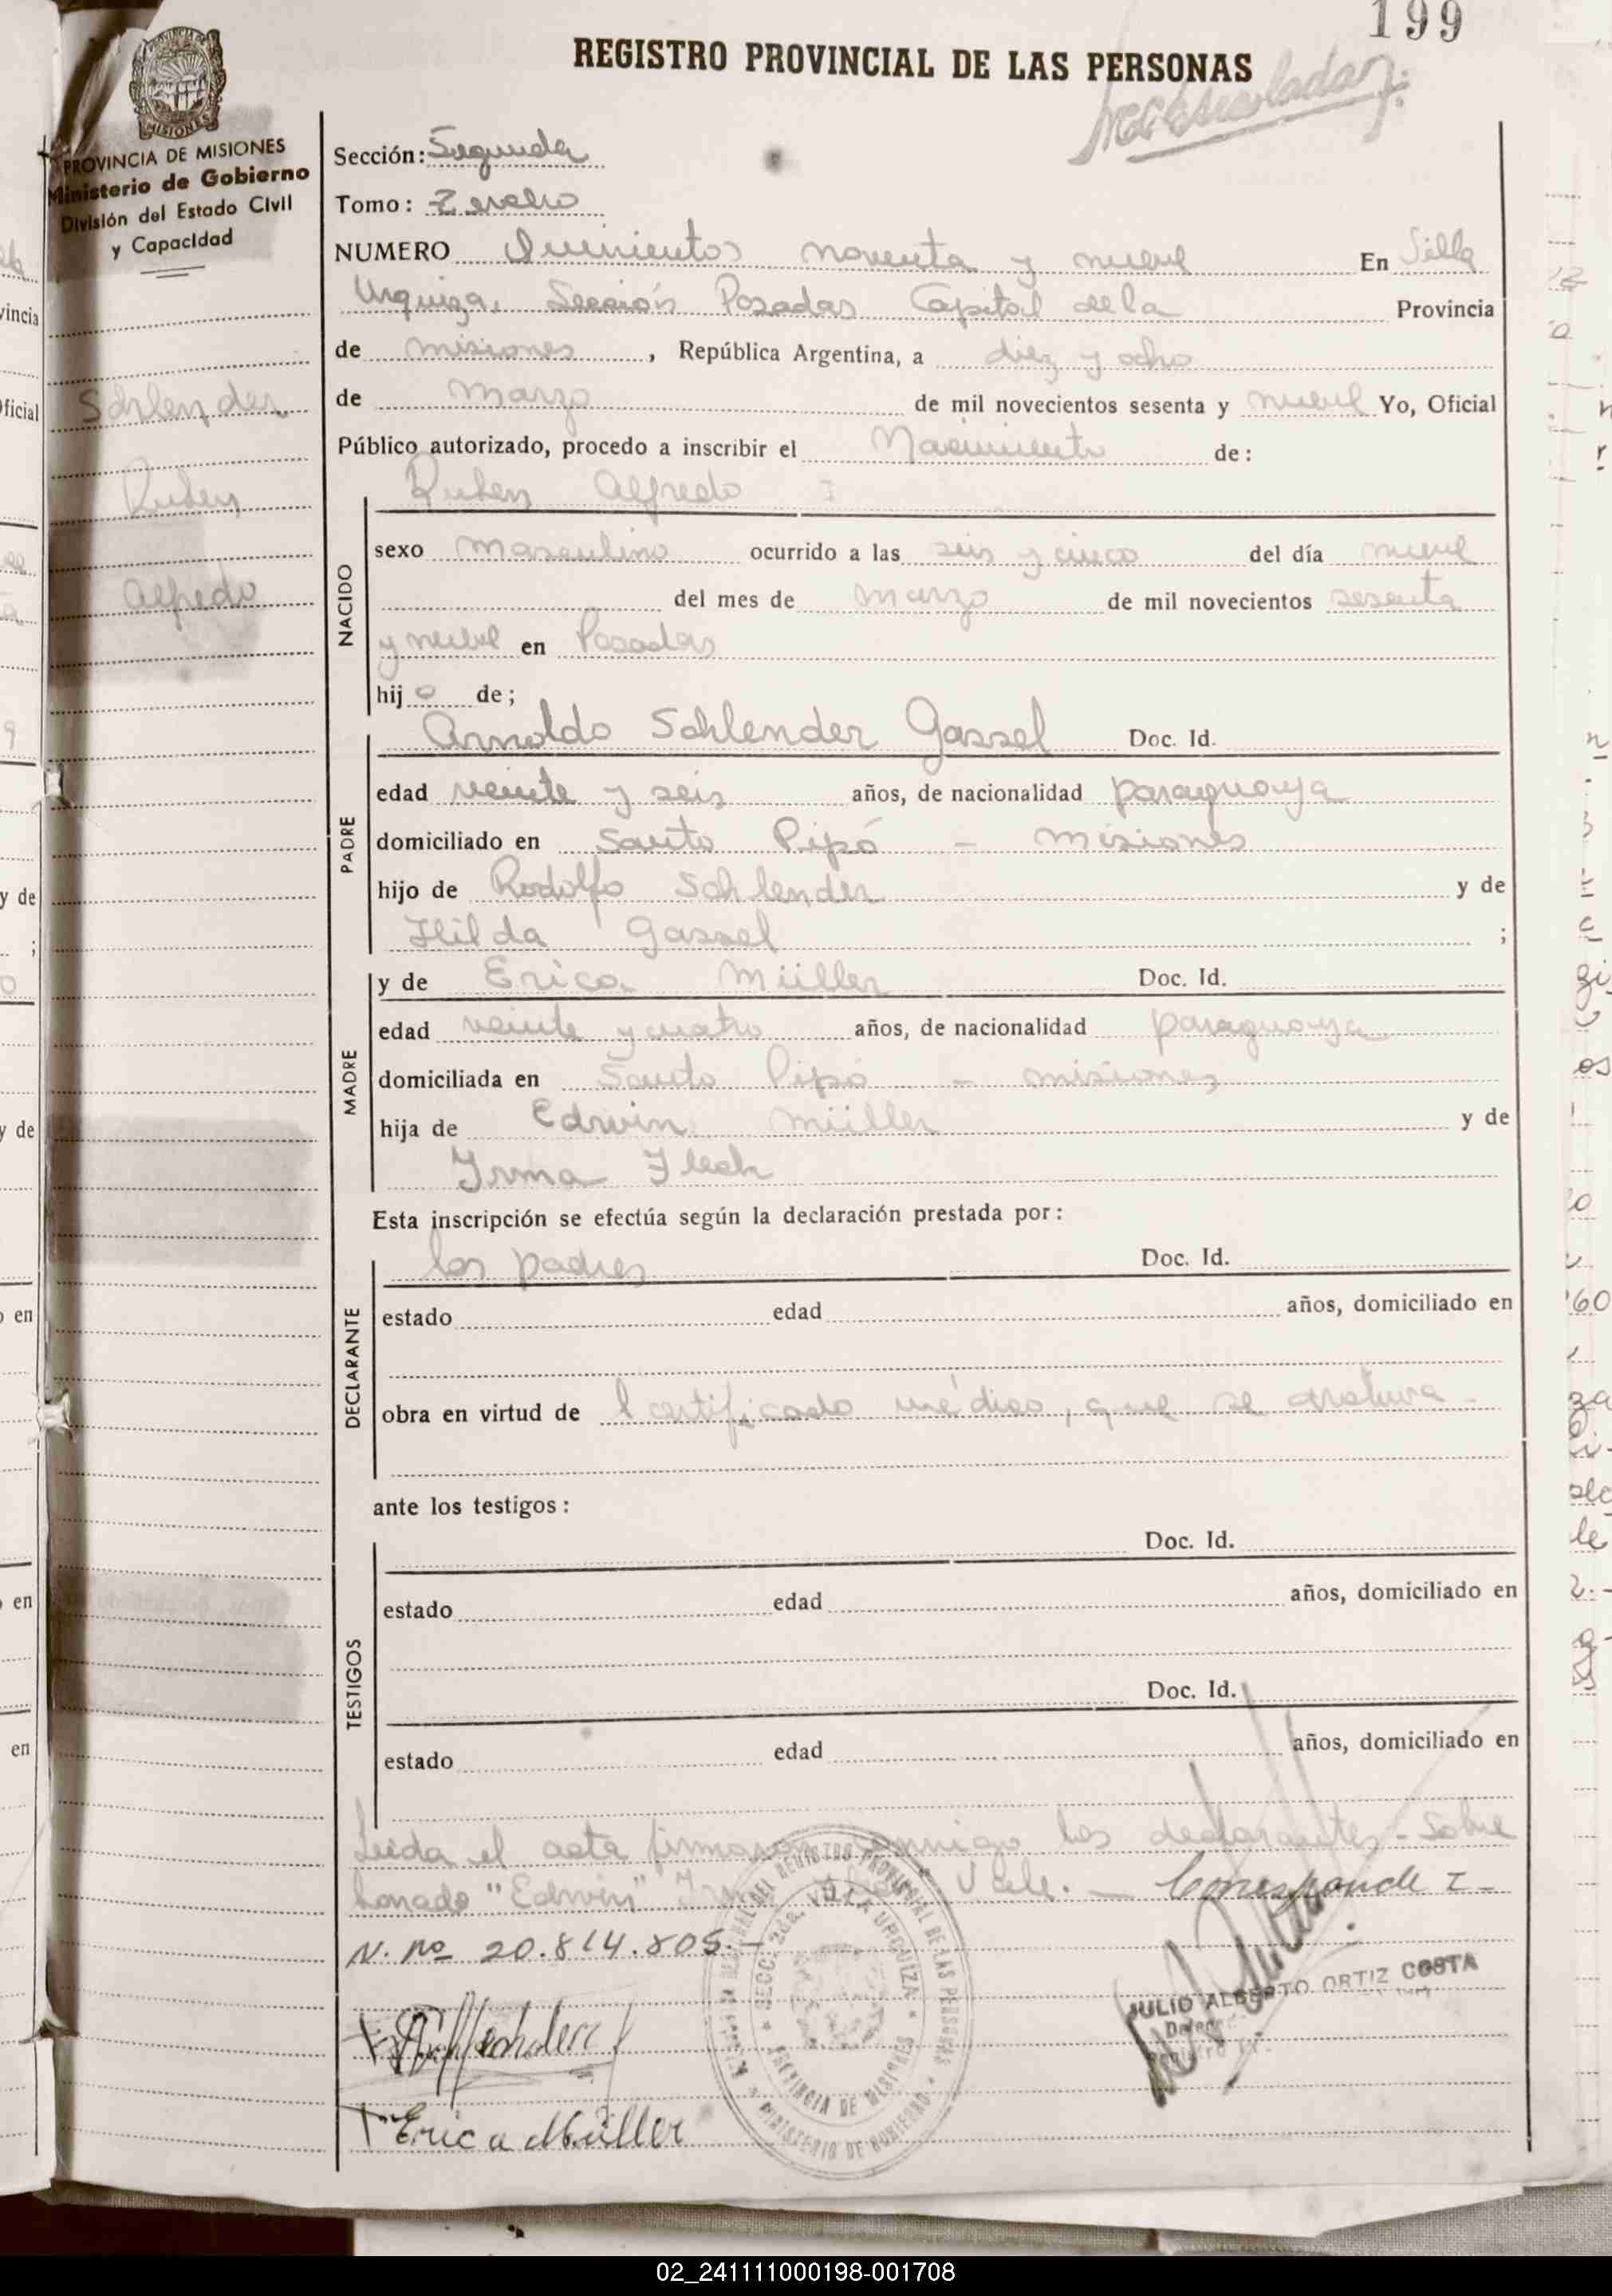 199
REGISTRO PROVINCIAL DE LAS PERSONAS
MISIONES
PROVINCIA DE MISIONES
Ministerio de Gobierno
División del Estado Civil
y Capacidad
Sección: Segunda
Tomo:
NUMERO Quinientos noventa y nueve En Villa
Urquiza, Sección Posadas Capital de la Provincia
de misiones, República Argentina, a diez y ocho
Schlender
de marzo de mil novecientos sesenta y nueve Yo, Oficial
Público autorizado, procedo a inscribir el Nacimiento de:
Ruben
Ruben Alfredo
NACIDO
sexo masculino ocurrido a las seis y cinco del día nueve
Alfredo
del mes de marzo de mil novecientos sesenta
y nueve en Posadas
hijo de;
PADRE
Arnoldo Schlender Gassel Doc. Id.
edad veinte y seis años, de nacionalidad paraguaya
domiciliado en Santo Pipó - misiones
hijo de Rodolfo Schlender y de
Hilda Gassel ;
MADRE
y de Erica Müller Doc. Id.
edad veinte y cuatro años, de nacionalidad paraguaya
domiciliada en Santo Pipó - misiones
hija de Edwin Müller y de
Irma
Esta inscripción se efectúa según la declaración prestada por:
DECLARANTE
los padres Doc. Id.
estado edad años, domiciliado en
obra en virtud de l certificado médico, que se
ante los testigos:
TESTIGOS
Doc. Id.
estado edad años, domiciliado en
Doc. Id.
estado edad años, domiciliado en
Leída el acta firmaron conmigo los declarantes - Sobre
"Edwin" Vale. — Corresponde I-
N. Nº 20.814.805.-
SECC. 2da. VILLA URQUIZA
PROVINCIA DE MISIONES
MINISTERIO DE GOBIERNO
JULIO ALBERTO ORTIZ COSTA
Erica Müller
02_241111000198-001708